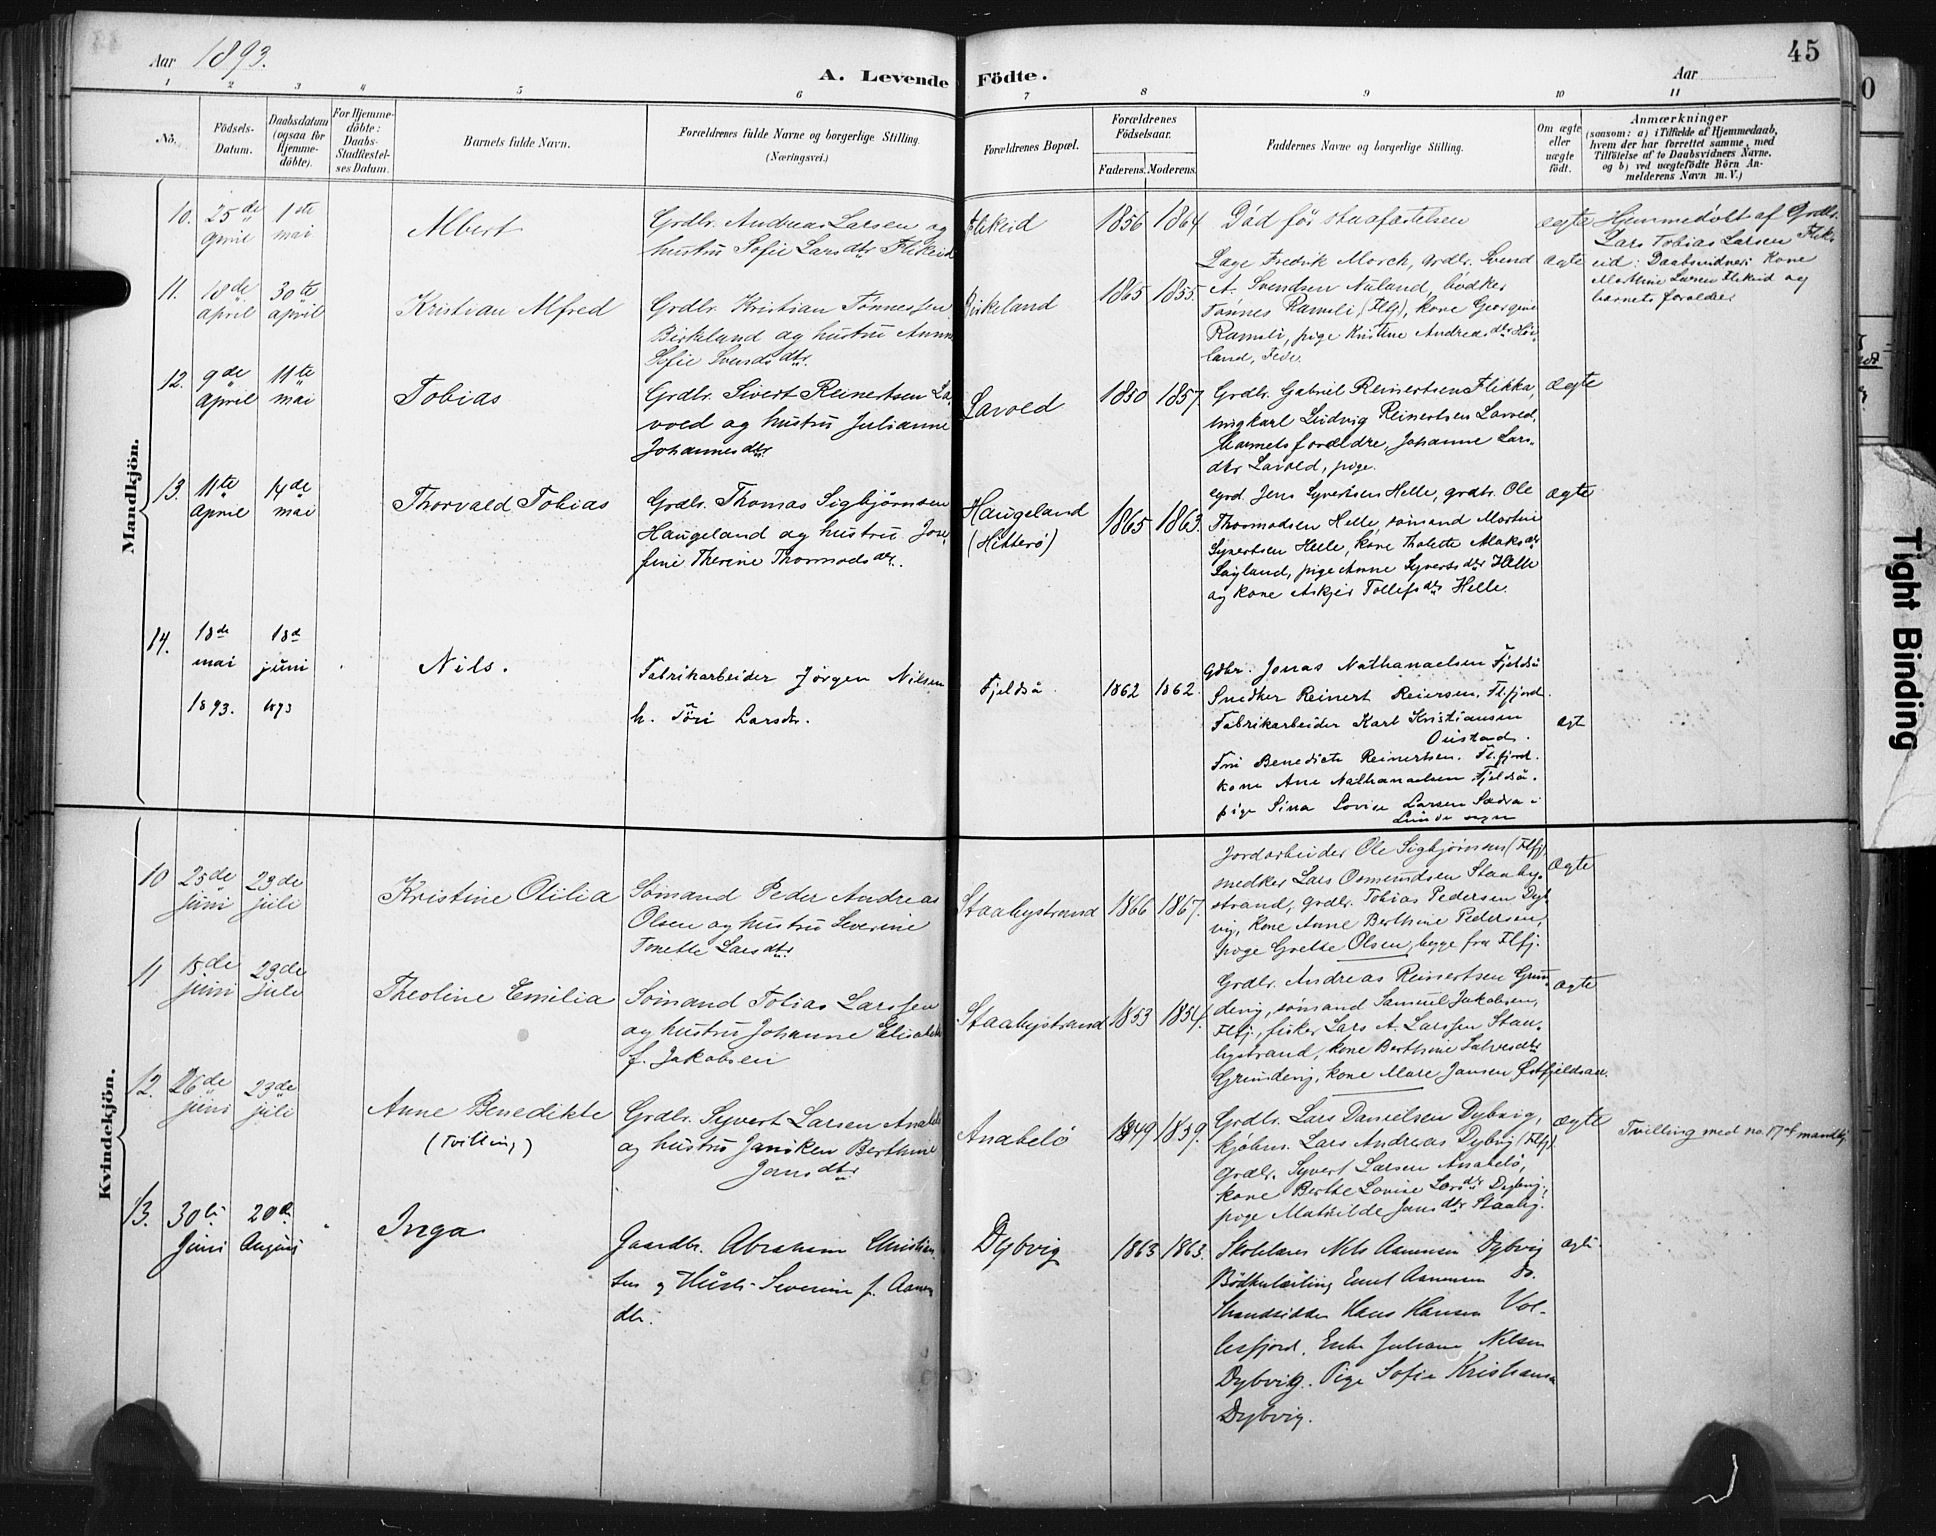 45
Aar 1893.
A. Levende Födte.
Aar
1 2 3 4 5 6 7 8 9 10 11
No.
Födsels-
Datum.
Daabsdatum
(ogsaa for
Hjemme-
döbte).
For Hjemme-
döbte:
Daabs-
Stadfæstel-
ses Datum.
Barnets fulde Navn.
Forældrenes fulde Navne og borgerlige Stilling.
(Næringsvei.)
Forældrenes Bopæl.
Forældrenes
Födselsaar.
Faderens. Moderens.
Faddernes Navne og borgerlige Stilling.
Om ægte
eller
uægte
födt.
Anmærkninger
(saasom: a) i Tilfælde af Hjemmedaab,
hvem der har forrettet samme, med
Tilföielse af to Daabsvidners Navne,
og b) ved uægtefödte Börn An-
melderens Navn m. V.)
Mandkjön.
10.
25de
april
1ste
mai
Albert
Grdbr. Andreas Larsen og
hustru Sofie Larsdtr Flikeid
Flikeid
1856
1864
Død før stadfæstelsen
ægte
Hjemmedøbt af Grdbr.
Lars Tobias Larsen Flik-
eid: Daabsvidner: Kone
Larsen Flikeid og
barnets forældre
11.
18de
april
30te
april
Kristian Alfred
Grdbr. Kristian Tønnessen
Birkeland og hustru Anne
Sofie Svendsdtr.
Birkeland
1865
1855
Lage Fredrik Morch, grdbr. Svend
A. Svendsen Nuland, bødker
Tønnes Ramsli (Flfj), kone Georgine
Ramsli, pige Kristine Andreasdtr Høi-
land, Fede.
ægte
12.
9de
april
11te
mai
Tobias
Grdbr. Sivert Reinertsen La-
vold og hustru Julianne
Johannesdtr
Lavold
1850
1857
Grdbr. Gabriel Reinertsen Flikka,
ungkarl Ludvig Reinertsen Lavold,
Barnets forældre, Johanne Lars-
dtr Lavold, pige.
ægte
13.
11te
april
14de
mai
Thorvald Tobias
Grdbr. Thomas Sigbjørnsen
Haugeland og hustru Jose-
fine Therine Thormodsdtr.
Haugeland
(Hitterø)
1865
1863.
Jens Syvertsen Helle, grdbr. Ole
Thormodsen Helle, sømand Martin
Syvertsen Helle, kone Tholette
Løyland, pige Anne Syvertsdtr Helle
og kone Askjer Tollefsdtr Helle.
ægte
14.
18de
mai
1893.
18d
juni
1893
Nils.
Fabrikarbeider Jørgen Nilsen
h. Tøri Larsdr.
Fjeldså.
1862
1862.
Gdbr. Jonas Nathanaelsen Fjeldså
Snedker Reinert Reiersen, Fl.fjord.
Fabrikarbeider Karl Kristiansen
Ouistad.
Fru Benedicte Reinertsen. Fl.fjord.
kone Ane Nathanaelsen Fjeldså.
pige Sina Lovise Larsen Sædra i
Lunde sogn
ægt
Kvindekjön.
10
25de
juni
23de
juli
Kristine Otilia
Sømand Peder Andreas
Olsen og hustru Severine
Tonette Larsdtr
Staabystrand
1866
1867.
Jordarbeider Ole Sigbjørnsen (Flfj)
snedker Lars Osmundsen Staaby-
strand, grdbr. Tobias Pedersen Dyb-
vig, kone Anne Berthine Pedersen,
pige Grethe Olsen, begge fra Flfj.
ægte
11
15de
juni
23de
juli
Theoline Emilia
Sømand Tobias Larssen
og hustru Johanne Elisabeth
f. Jakobsen
Staabystrand
1853
1854.
Grdbr. Andreas Reinertsen Grun-
deng, sømand Samuel Jakobsen,
Flfj, fisker Lars A. Larssen Staa-
bystrand, kone Berthine Salvesdtr
Grundeng, kone Mare Jansen Østfjeldsaa.
ægte
12.
26de
juni
23de
juli
Anne Benedikte
(Tvilling)
Grdbr. Syvert Larsen Anabelø
og hustru Janiken Berthine
Jansdtr
Anabelø
1849
1859.
Grdbr. Lars Danielsen Dybvig,
kjøbm. Lars Andreas Dybvig (Flfj)
grdbr. Syvert Larsen Anabelø,
kone Berthe Lovise Larsdtr Dybvig,
pige Mathilde Jansdtr Staaby.
ægte
Tvilling med no. 17 af mandkj.
13.
30te
Juni
20d.
August
Inga
Gaardbr. Abraham Christian-
sen og Hustr. Severine f. Aanen-
dtr.
Dybvig
1863
1863.
Skolelærer Nels Aanensen Dybvig
Bødkerlærling Emil Aanensen Do.
Strandsidder Hans Hansen Vol-
lesfjord. Enke Juliane Nelsen
Dybvig. Pige Sofie Kristiansen
Dybvig.
ægte.
Tight Binding